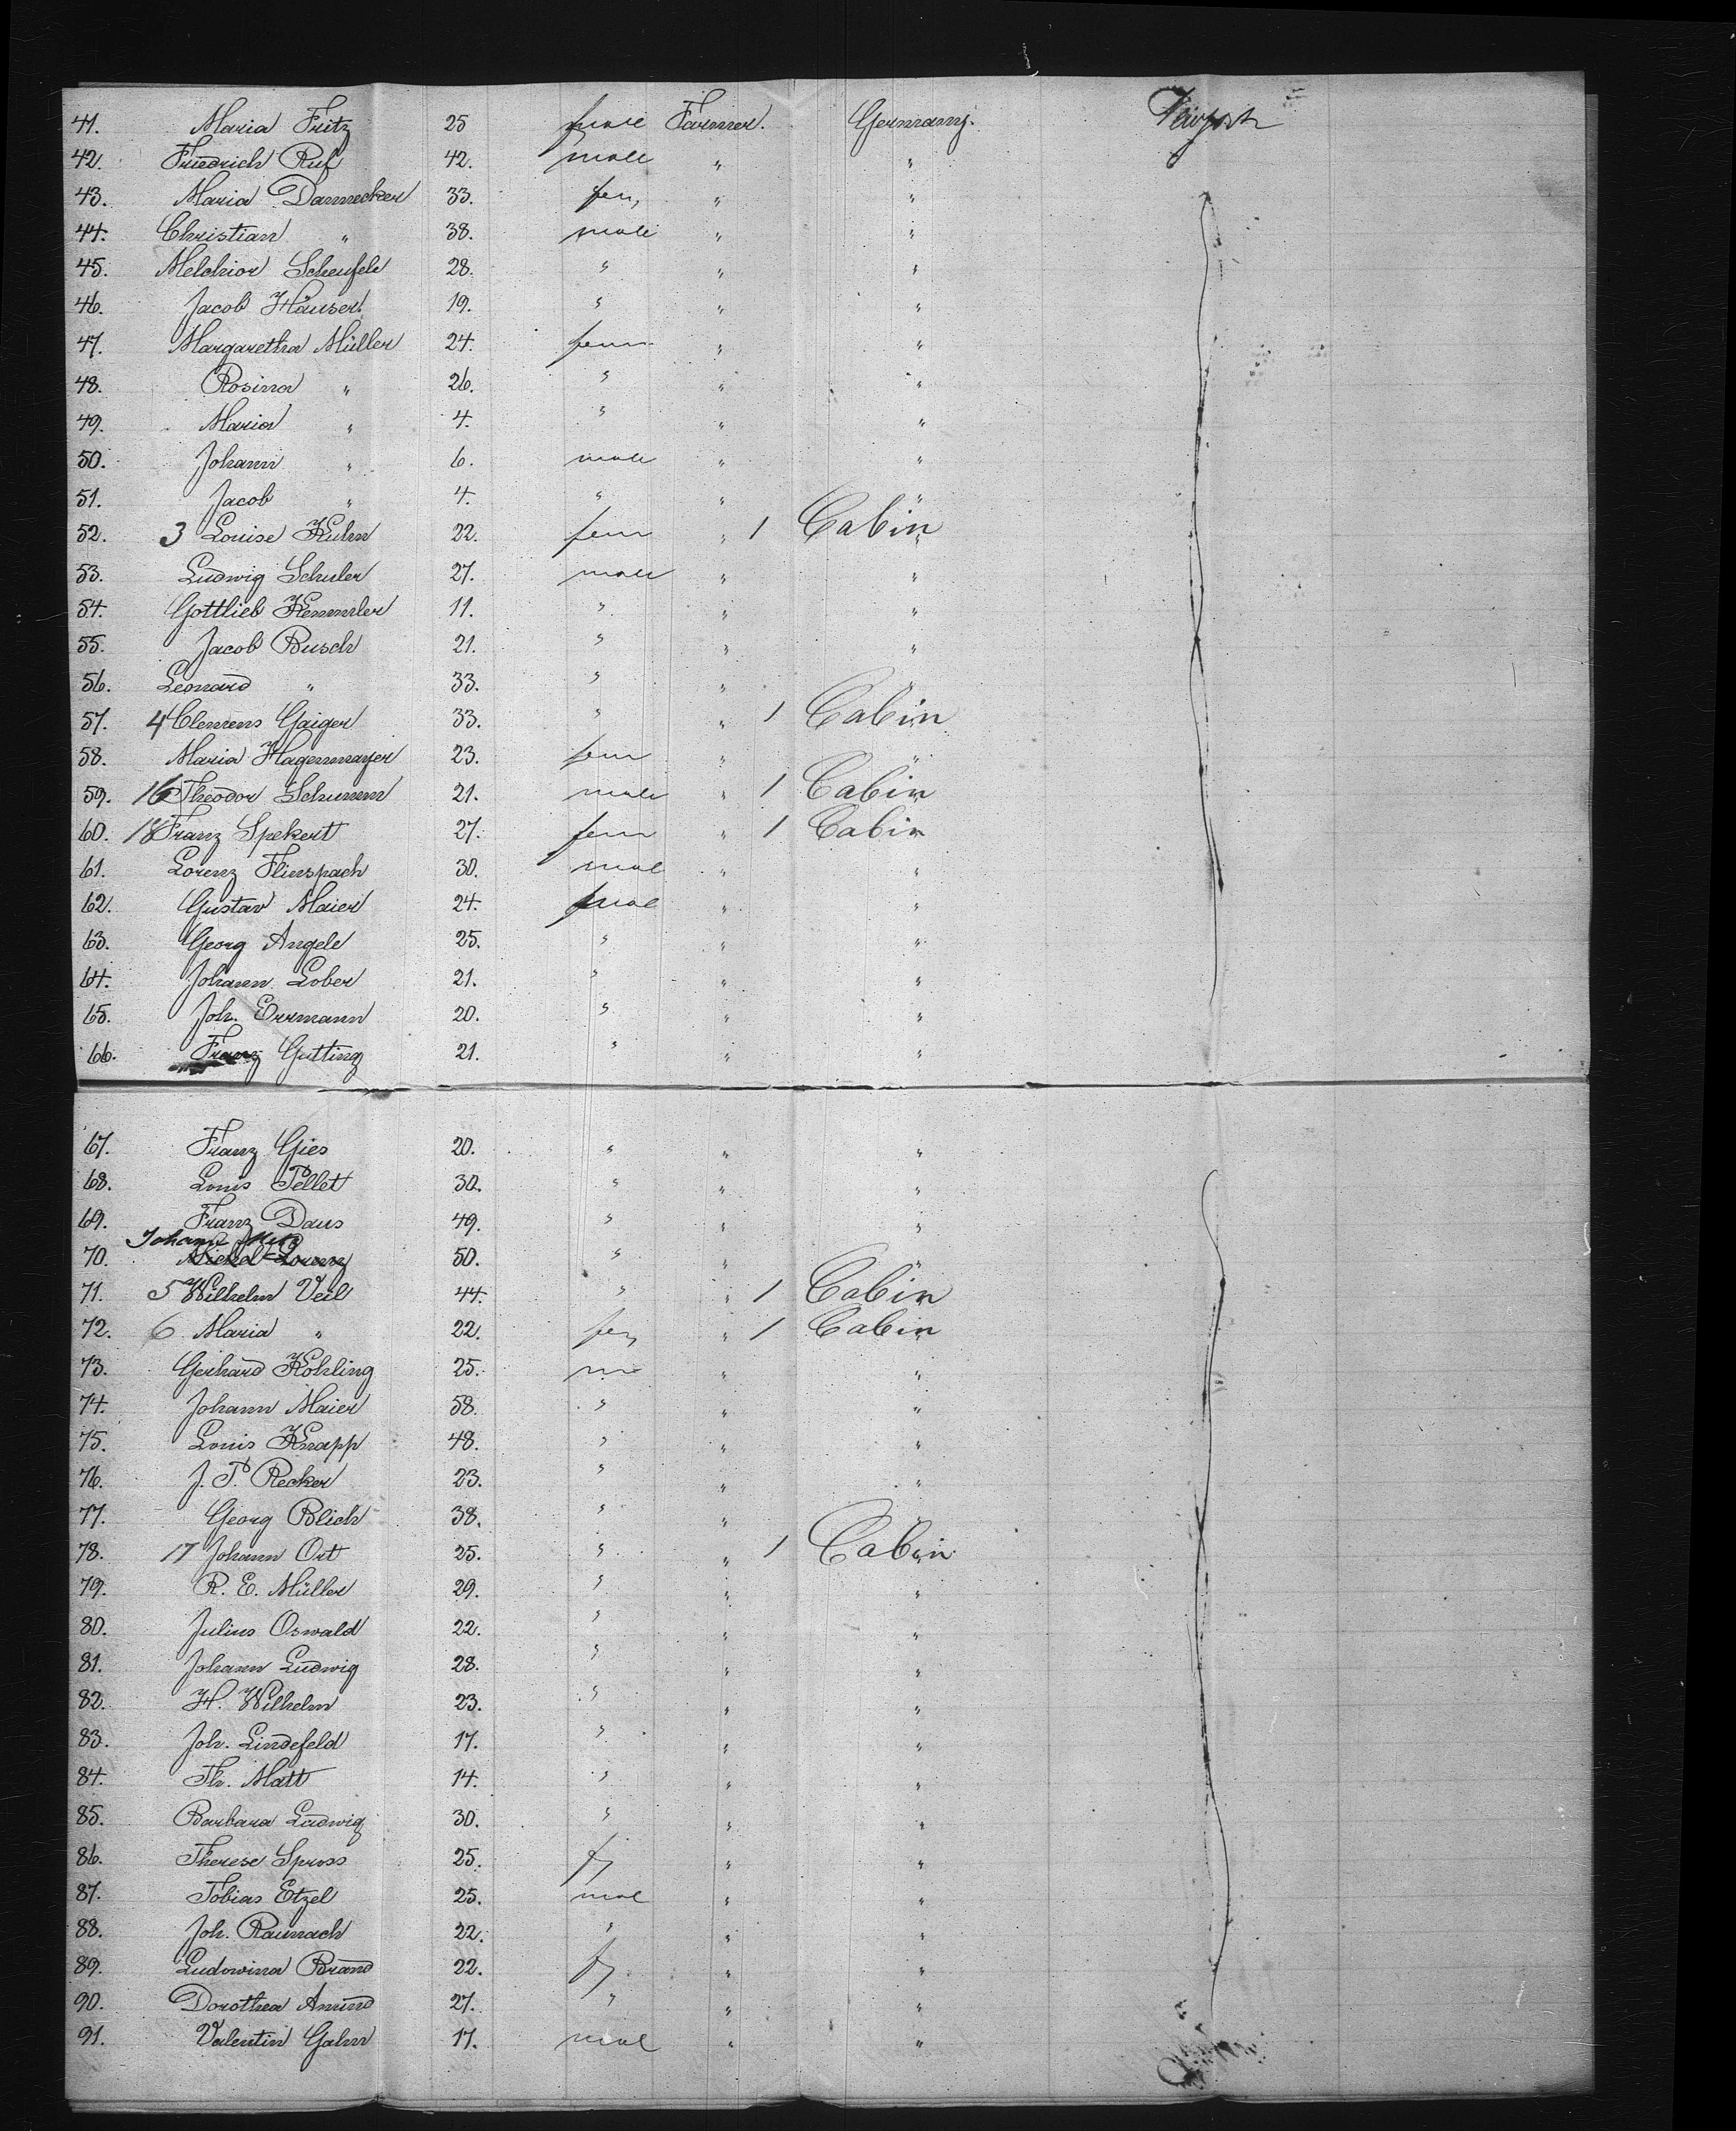 41. Maria Fritz 25 male Farmer. Germany. Newyork
42. Friedrich Ruf 42. male " "
43. Maria Dannecker 33. fem " "
44. Christian " 38. male " "
45. Melchior Scheufele 28. " " "
46. Jacob Häuser 19. " " "
47. Margaretha Müller 24. fem " "
48. Rosina " 26. " " "
49. Maria " 4. " " "
50. Johann " 6. male " "
51. Jacob " 4. " " "
52. 3 Louise Kuhn 22. fem " 1 Cabin "
53. Ludwig Schuler 27. male " "
54. Gottlieb Kemmler 11. " " "
55. Jacob Busch 21. " " "
56. Leonard " 33. " " "
57. 4 Clemens Gaiger 33. " " 1 Cabin "
58. Maria Hagenmayer 23. fem " "
59. 16 Theodor Schumm 21. male " 1 Cabin "
60. 18 Franz Spekert 27. fem " 1 Cabin
61. Lorenz Flinspach 30. mal " "
62. Gustav Maier 24. mal " "
63. Georg Angele 25. " " "
64. Johann Lober 21. " " "
65. Joh. Ermann 20. " " "
66. Franz Gutting 21. " " "
67. Franz Gies 20. " " "
68. Louis Pellet 30. " " "
69. Franz Daus 49. " " "
Johann
70. Michel Lorenz 50. " " "
71. 5 Wilhelm Veil 44. " " 1 Cabin "
72. 6 Maria " 22. fem " 1 Cabin "
73. Gerhard Kohling 25. m " "
74. Johann Maier 58. " " "
75. Louis Knapp 48. " " "
76. J. P. Recker 23. " " "
77. Georg Blich 38. " " "
78. 17 Johann Ort 25. " " 1 Cabin "
79. R. E. Müller 29. " " "
80. Julius Oswald 22. " " "
81. Johann Ludwig 28. " " "
82. H. Wilhelm 23. " " "
83. Joh. Lindefeld 17. " " "
84. Th. Matt 14. " " "
85. Barbara Ludwig 30. " " "
86. Therese Spross 25. f " "
87. Tobias Etzel 25. mal " "
88. Joh. Raunach 22. " " "
89. Ludowina Brand 22. f " "
90. Dorothea Amend 27. " " "
91. Valentin Galm 17. mal " "